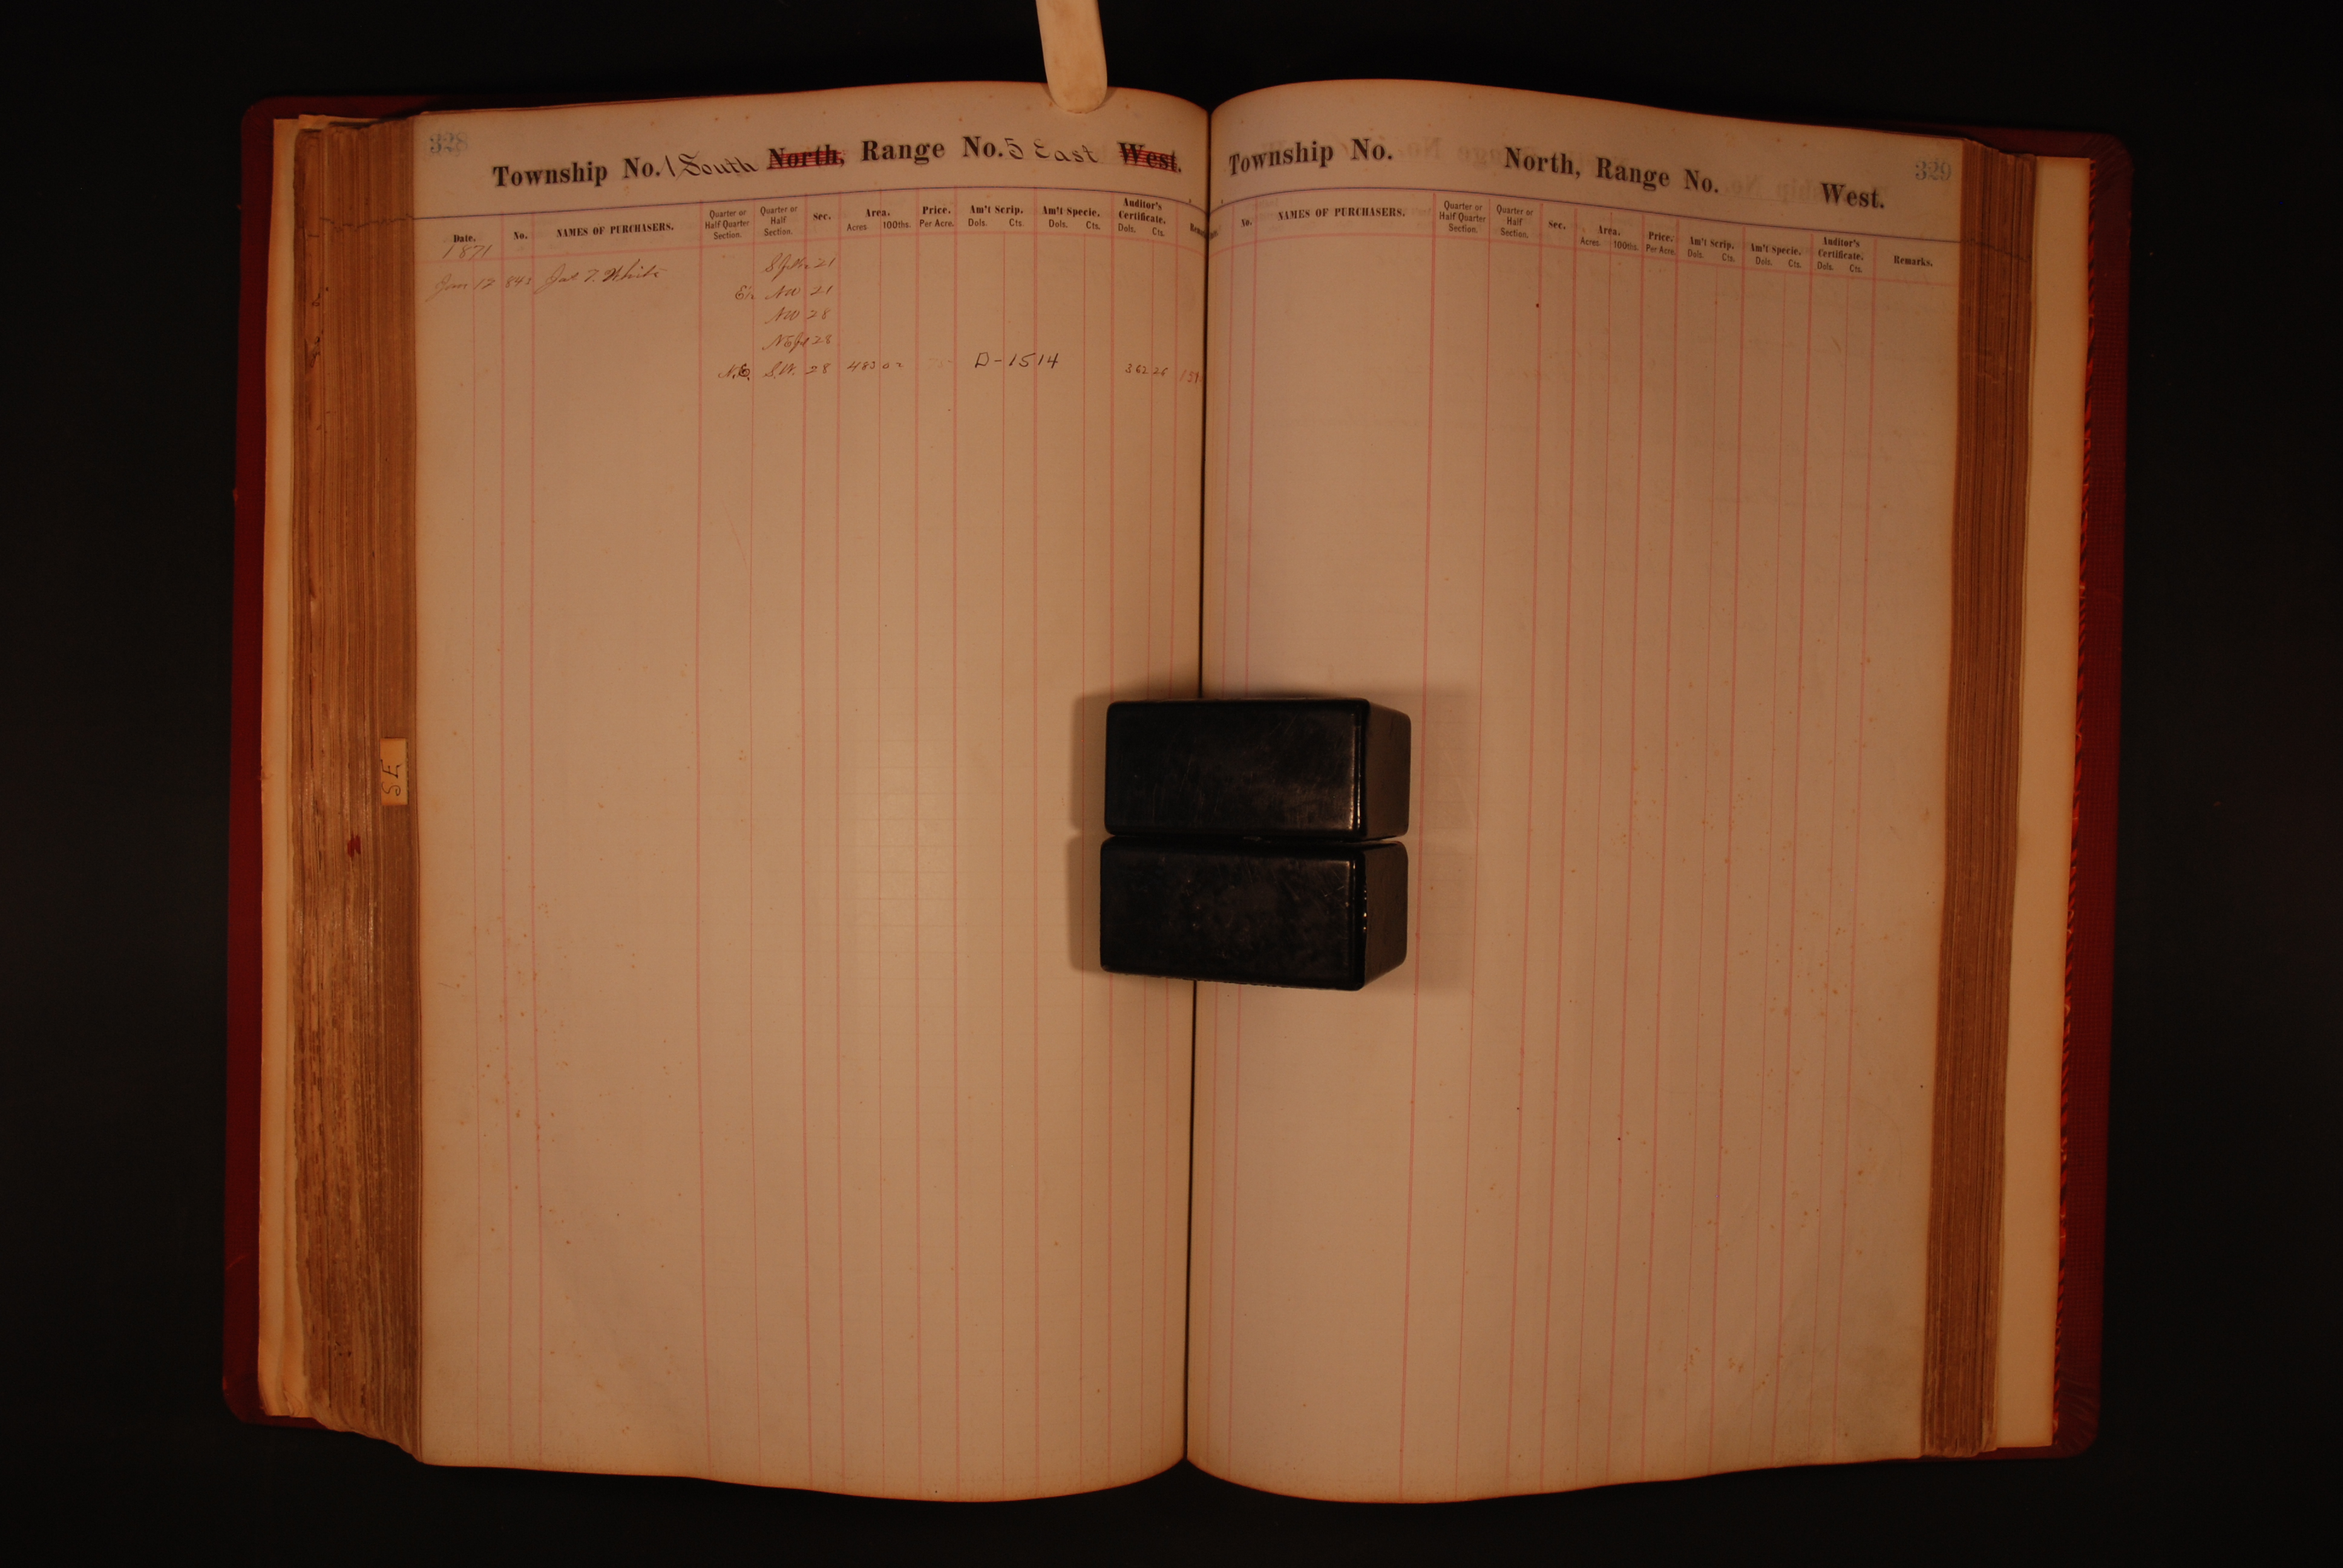 328
Township No. 1 South North, Range No. 5 East West.
Date. No. NAMES OF PURCHASERS. Quarter or Half Quarter Section. Quarter or Half Section. Sec. Area. Acres 100ths. Price. Per Acre. Am't Scrip. Dols. Cts. Am't Specie. Dols. Cts. Auditor's Certificate. Dols. Cts.
1871
Jan 12 843 Jas T. White 21
E½ NW 21
NW 28
28
N.E. S.W. 28 483 02 D-1514 362 26
SE
329
Township No. North, Range No. West.
No. NAMES OF PURCHASERS. Quarter or Half Quarter Section. Quarter or Half Section. Sec. Area. Acres 100ths. Price. Per Acre. Am't Scrip. Dols. Cts. Am't Specie. Dols. Cts. Auditor's Certificate. Dols. Cts. Remarks.